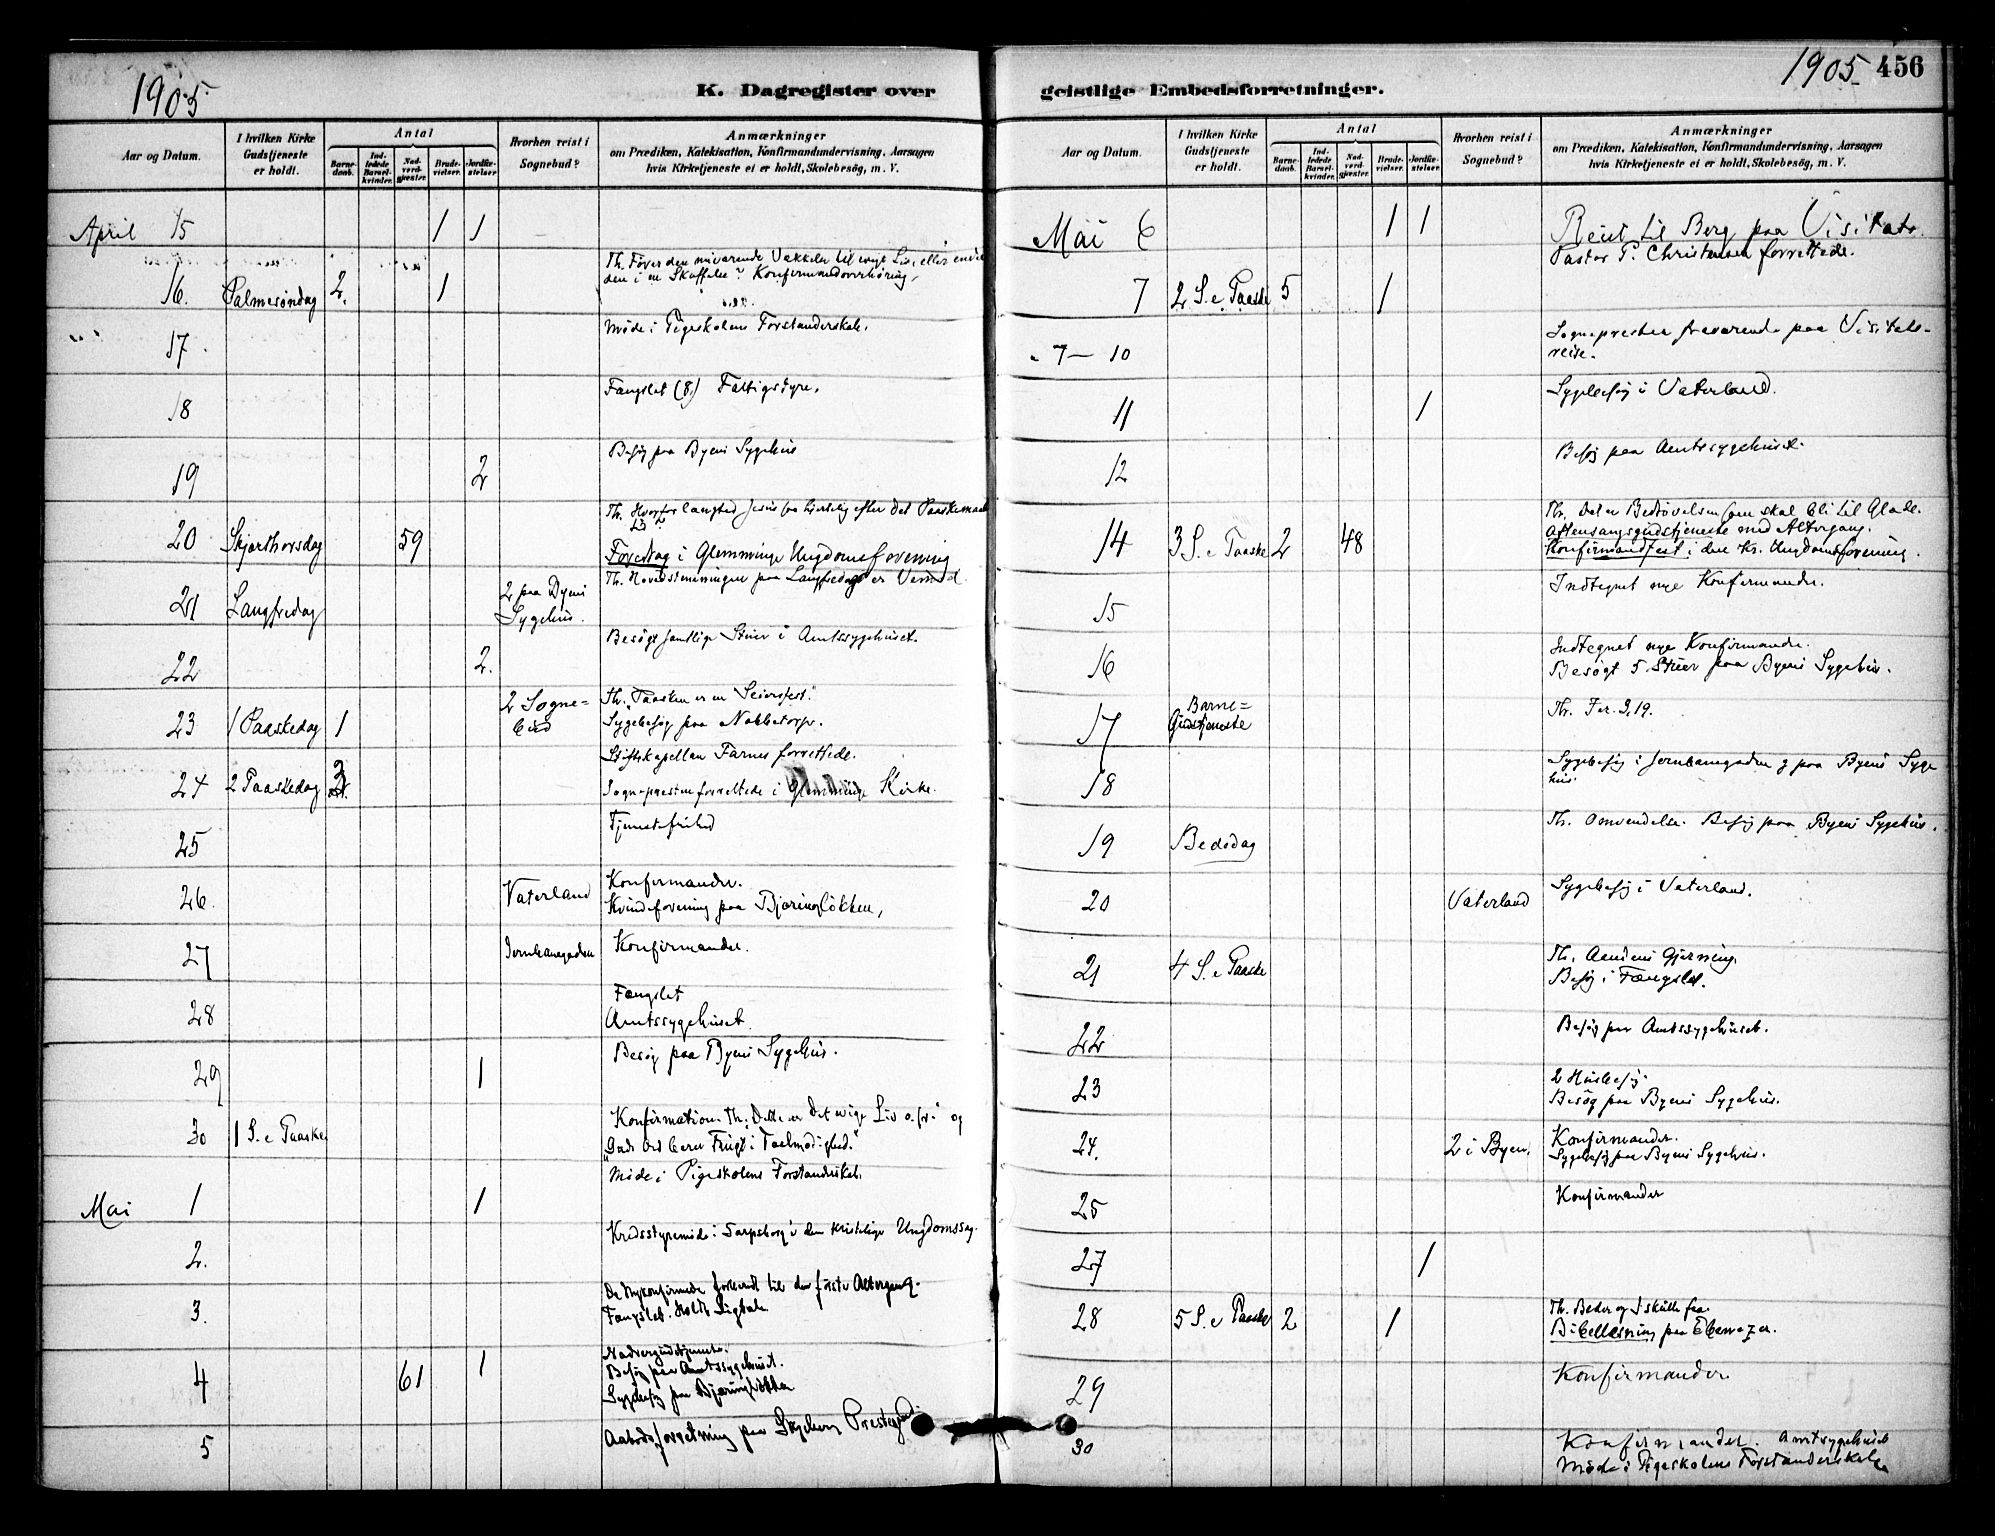 1905
K. Dagregister over
Aar og Datum.
I hvilken Kirke Gudstjeneste er holdt.
Antal
Barnedaab.
Indledede Barselkvinder.
Nadverdgjæster.
Brudevielser.
Jordfæstelser
Hvorhen reist i Sognebud?
Anmærkninger
om Prædiken, Katekisation, Konfirmandundervisning, Aarsagen
hvis Kirketjeneste ei er holdt, Skolebesög, m. V.
April 15 1 1
16. Palmesöndag 2. 1 Konfirmandoverhöring,
17. Möde i Pigeskolens Forstanderskab.
18 Fængslet (8) Fattigstyre.
19 2 Besög paa Byens Sygehus
20 Skjærthorsdag 59 Th. Hvorfor længted Jesus saa hjertelig efter det Paaskemaal
Foredrag i Glemminge Ungdomsforening
21 Langfredag 2 paa Byens Sygehus. Th. Hovedstemningen paa Langfredag er Vemod.
22 2. Besögt samtlige Stuer i Amtssygehuset.
23 1 Paaskedag 1 2 Sognebud Th. "Paasken er en Seiersfest."
Sygebesög paa Nabbetorp.
Stiftskapellan Farnes forrettede.
24 2 Paaskedag 3 Sognepresten forrettede i Glemminge Kirke.
25 Tjenestefrihed
26. Vaterland Konfirmander.
Kvindeforening paa Björinglökken,
27 Jernbanegaden Konfirmander.
28 Fængslet
Amtssygehuset.
29 1 Besög paa Byens Sygehus.
30 1 S. e Paaske Konfirmation. Th. Dette er det evige Liv o.s.v." og
"Guds Ord bærer Frugt i Taalmodighed."
Mai 1 1 Möde i Pigeskolens Forstanderskab.
2. Kredsstyremöde i Sarpsborg i den kristelige Ungdomssag.
3. De nykonfirmerede forberedt til den förste Altergang.
Fængslet. Holdt Ligtale
4 61 1 Nadvergudstjeneste.
Besög paa Amtssygehuset.
Sygebesög paa Björinglökken
5 Aabodsforretning paa Prestegaard.
1905 456
geistlige Embedsforretninger.
Aar og Datum.
I hvilken Kirke Gudstjeneste er holdt.
Antal
Barnedaab.
Indledede Barselkvinder.
Nadverdgjæster.
Brudevielser.
Jordfæstelser
Hvorhen reist i Sognebud?
Anmærkninger
om Prædiken, Katekisation, Konfirmandundervisning, Aarsagen
hvis Kirketjeneste ei er holdt, Skolebesög, m. V.
Mai 6 1 1 Reist til Berg paa Visitats.
Pastor P. Christensen forrettede.
7 2 S. e Paaske 5 1
7-10 Sognepresten fraværende paa Visitatsreise.
11 1 Sygebesög i Vaterland.
12 Besög paa Amtssygehuset.
14 3 S. e Paaske 2 48 Th. Det er Bedrövelsen som skal bli til Glæde.
Aftensangsgudstjeneste med Altergang.
Konfirmandfest i den kr. Ungdomsforening.
15 Indtegnet nye Konfirmander.
16 Indtegnet nye Konfirmander.
Besögt 5 Stuer paa Byens Sygehus.
17 Barne=
Gudstjeneste Th. Jer. 3,19.
18 Sygebesög i Jernbanegaden og paa Byens Sygehus.
19 Bededag Th. Omvendelse. Besög paa Byens Sygehus.
20 Vaterland Sygebesög i Vaterland.
21 4 S. e Paaske Th. Aandens Gjerning.
Besög i Fængslet.
22 Besög paa Amtssygehuset.
23 2 Husbesög
Besög paa Byens Sygehus.
24. 2 i Byen. Konfirmander.
Sygebesög paa Byens Sygehus.
25 Konfirmander
27 1
28 5 S. e Paaske 2 1 Th. Beder og I skulle faa.
Bibellæsning paa Ebenezer.
29 Konfirmander.
30 Konfirmander. Amtssygehuset
Möde i Pigeskolens Forstanderskab